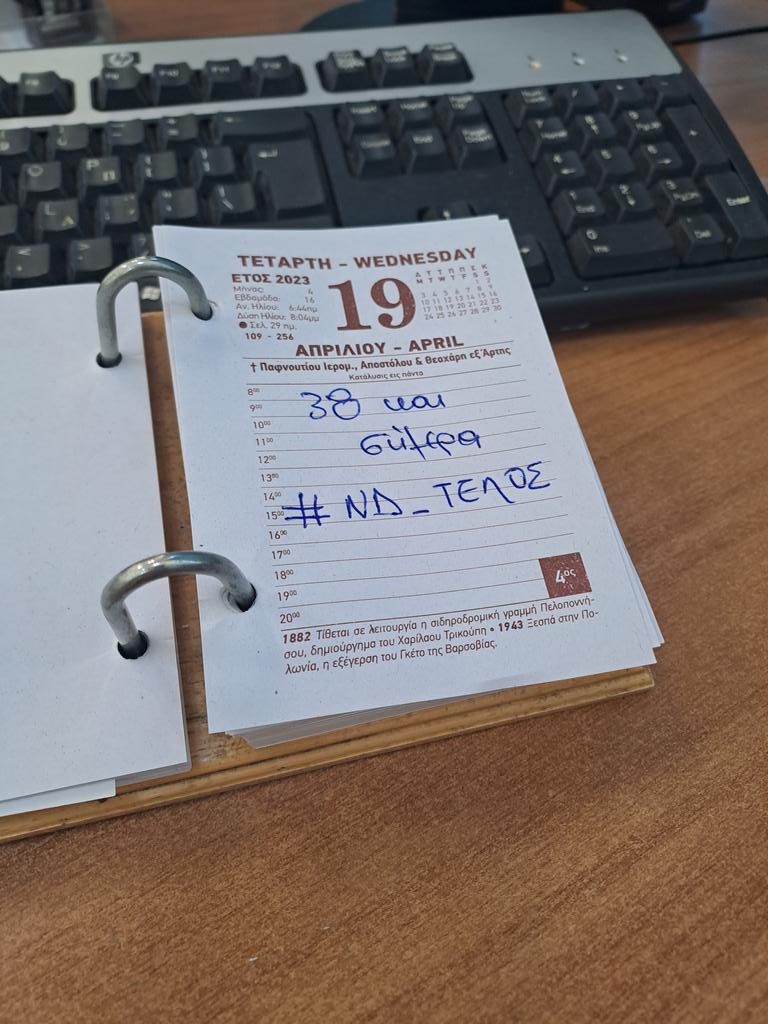 ΤΕΤΑΡΤΗ - WEDNESDAY
ΕΤΟΣ 2023
Μήνας: 4
Εβδομάδα: 16
Αν. Ηλίου: 6:44πμ
Δύση Ηλίου: 8:04μμ
● Σελ. 29 ημ.
109 - 256
19
Δ Τ Τ Π Π Σ Κ
M T W T F S S
1 2
3 4 5 6 7 8 9
10 11 12 13 14 15 16
17 18 19 20 21 22 23
24 25 26 27 28 29 30
ΑΠΡΙΛΙΟΥ - APRIL
† Παφνουτίου Ιερομ., Αποστόλου & Θεοχάρη εξ Άρτης
Κατάλυσις εις πάντα
8⁰⁰
9⁰⁰ 38 και
10⁰⁰
11⁰⁰ σήμερα
12⁰⁰
13⁰⁰
14⁰⁰
15⁰⁰ # ND_ΤΕΛΟΣ
16⁰⁰
17⁰⁰
18⁰⁰
19⁰⁰
20⁰⁰
4ος
1882 Τίθεται σε λειτουργία η σιδηροδρομική γραμμή Πελοποννή-
σου, δημιούργημα του Χαρίλαου Τρικούπη • 1943 Ξεσπά στην Πο-
λωνία, η εξέγερση του Γκέτο της Βαρσοβίας.
hp
Enter